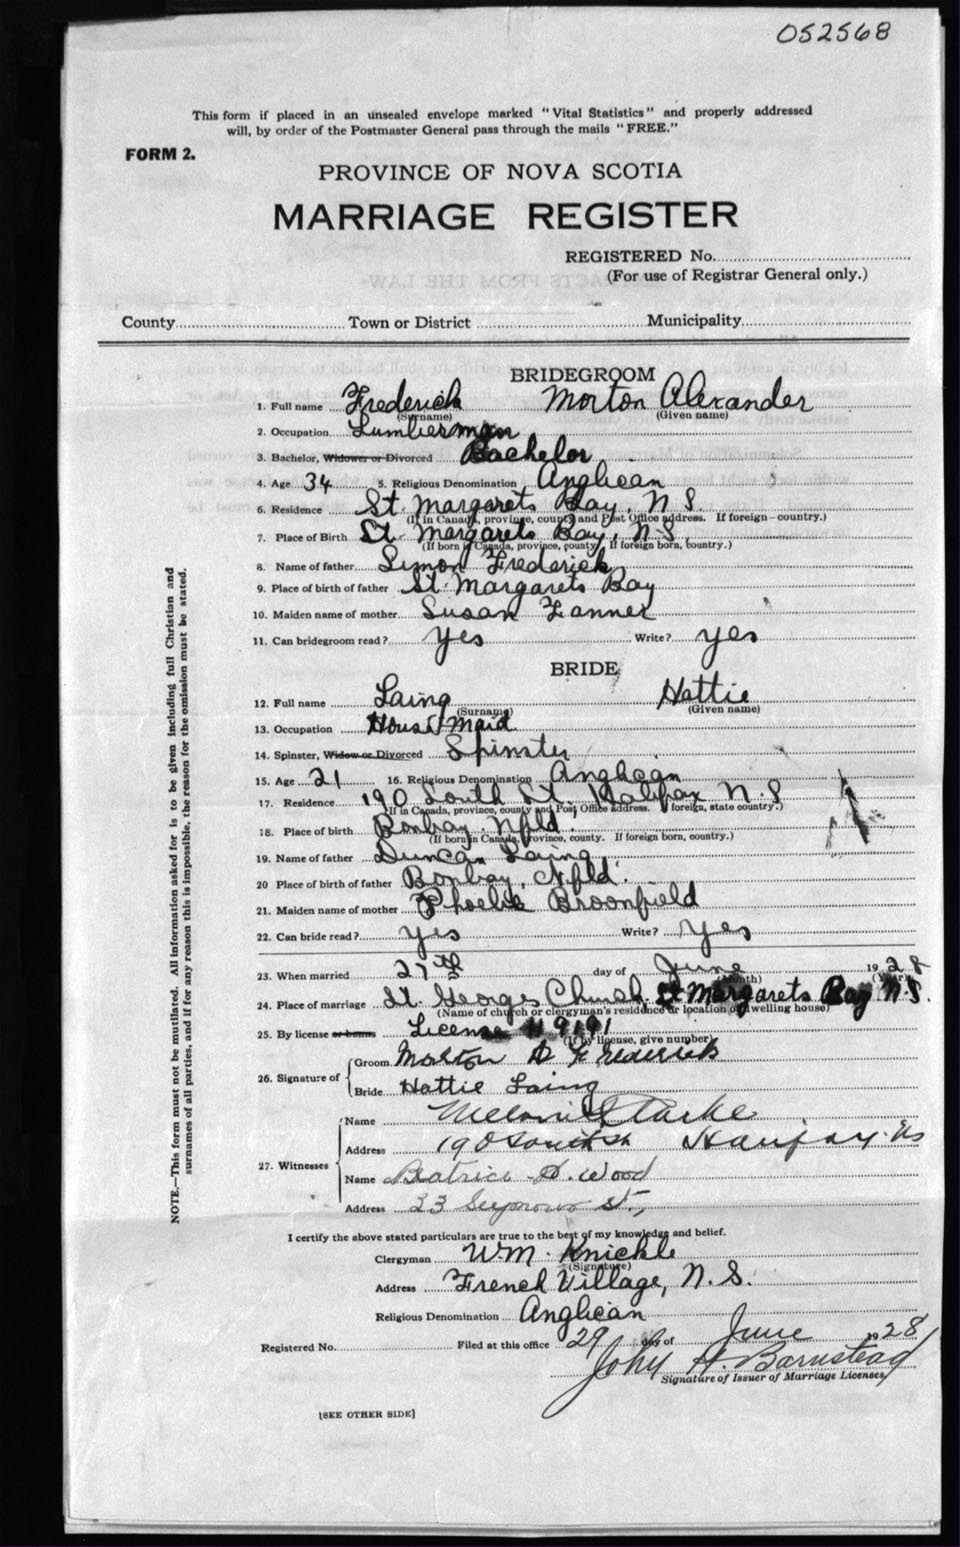 052568
This form if placed in an unsealed envelope marked "Vital Statistics" and properly addressed
will, by order of the Postmaster General pass through the mails "FREE."
FORM 2.
PROVINCE OF NOVA SCOTIA
MARRIAGE REGISTER
REGISTERED No.
(For use of Registrar General only.)
County Town or District Municipality
BRIDEGROOM
1. Full name Frederick Morton Alexander
(Surname) (Given name)
2. Occupation Lumberman
3. Bachelor, Widower or Divorced Bachelor
4. Age 34 5. Religious Denomination Anglican
6. Residence St. Margarets Bay, N.S.
(If in Canada, province, county and Post Office address. If foreign—country.)
7. Place of Birth St. Margarets Bay, N.S.
(If born in Canada, province, county. If foreign born, country.)
8. Name of father Simon Frederick
9. Place of birth of father St. Margarets Bay
10. Maiden name of mother Susan Fanner
11. Can bridegroom read? yes Write? yes
BRIDE
12. Full name Laing Hattie
(Surname) (Given name)
13. Occupation House Maid
14. Spinster, Widow or Divorced Spinster
15. Age 21 16. Religious Denomination Anglican
17. Residence 190 South St. Halifax N.S
(If in Canada, province, county and Post Office address. If foreign, state country.)
18. Place of birth Bonbay. Nfld.
(If born in Canada, province, county. If foreign born, country.)
19. Name of father Duncan Laing
20 Place of birth of father Bonbay, Nfld.
21. Maiden name of mother Phoebie Broomfield
22. Can bride read? yes Write? yes
23. When married 27th day of June 1928
(Month) (Year)
24. Place of marriage St. Georges Church St Margarets Bay N.S.
(Name of church or clergyman's residence or location of dwelling house)
25. By license or banns License 11919
(If by license, give number)
26. Signature of
Groom Morton A Frederick
Bride Hattie Laing
27. Witnesses
Name Clarke
Address 190 South St Halifax. NS
Name Beatrice H. Wood
Address 23 St.,
I certify the above stated particulars are true to the best of my knowledge and belief.
Clergyman Wm. Knickle
(Signature)
Address French Village, N.S.
Religious Denomination Anglican
Registered No. Filed at this office 29 day of June 1928
John H. Barnstead
Signature of Issuer of Marriage Licenses
[SEE OTHER SIDE]
NOTE.—This form must not be mutilated. All information asked for is to be given including full Christian and
surnames of all parties, and if for any reason this is impossible, the reason for the omission must be stated.